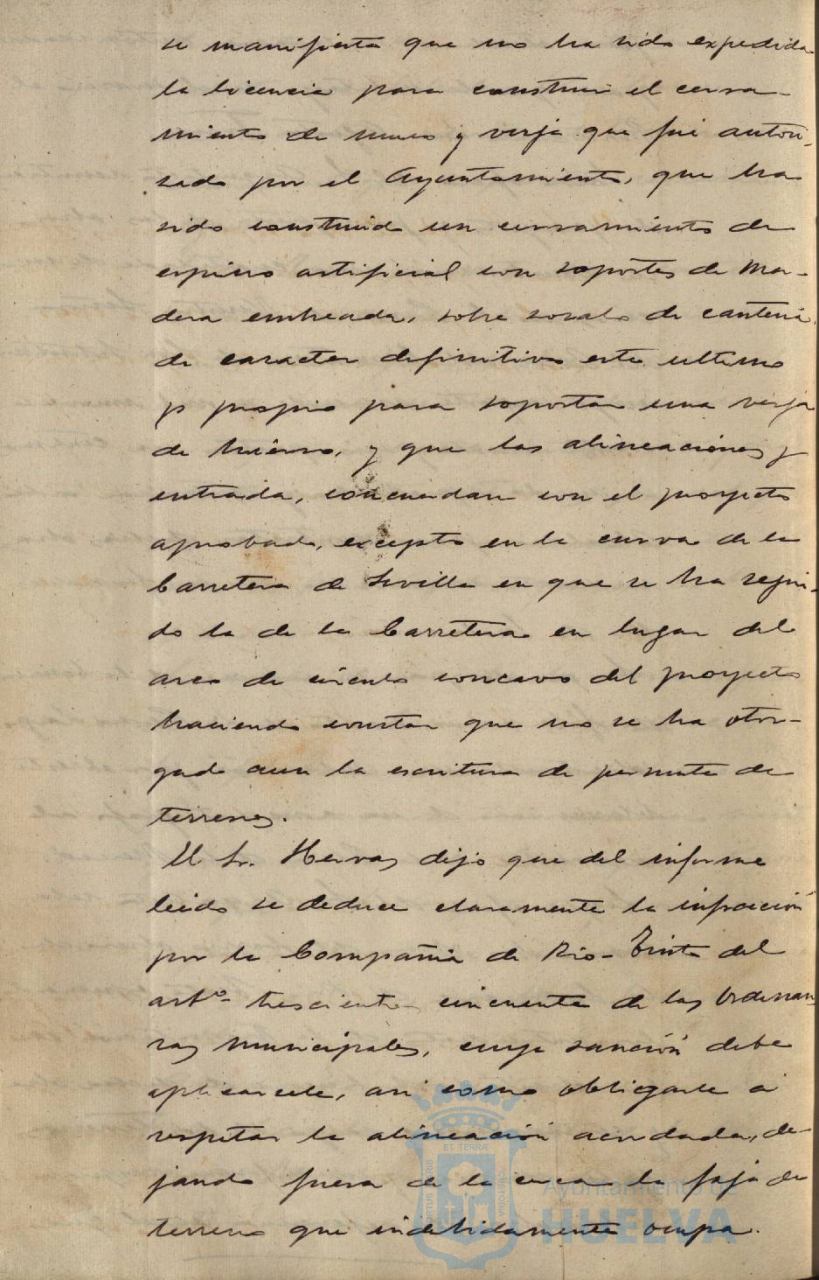 se manifiesta que no ha sido expedida
la licencia para construir el cerra-
miento de muro y verja que fué autori-
zado por el Ayuntamiento, que ha
sido construido un cerramiento de
espino artificial con soportes de ma-
dera embreada, sobre zocalo de canteria,
de caracter definitivo este ultimo
y propio para soportar una verja
de hierro, y que las alineaciones y
entrada, concuerdan con el proyecto
aprobado, excepto en la curva de la
Carretera de Sevilla en que se ha segui-
do la de la Carretera en lugar del
arco de circulo concavo del proyecto
haciendo constar que no se ha otor-
gado aun la escritura de permuta de
terrenos.
El Sr. Hervas dijo que del informe
leido se deduce claramente la infracción
por la Compañia de Rio-Tinto del
artº trescientos cincuenta de las Ordenan
zas municipales, cuya sanción debe
aplicarsele, asi como obligarle á
respetar la alineación acordada, de-
jando fuera de la cerca la faja de
terreno que indebidamente ocupa.
Ayuntamiento de
HUELVA